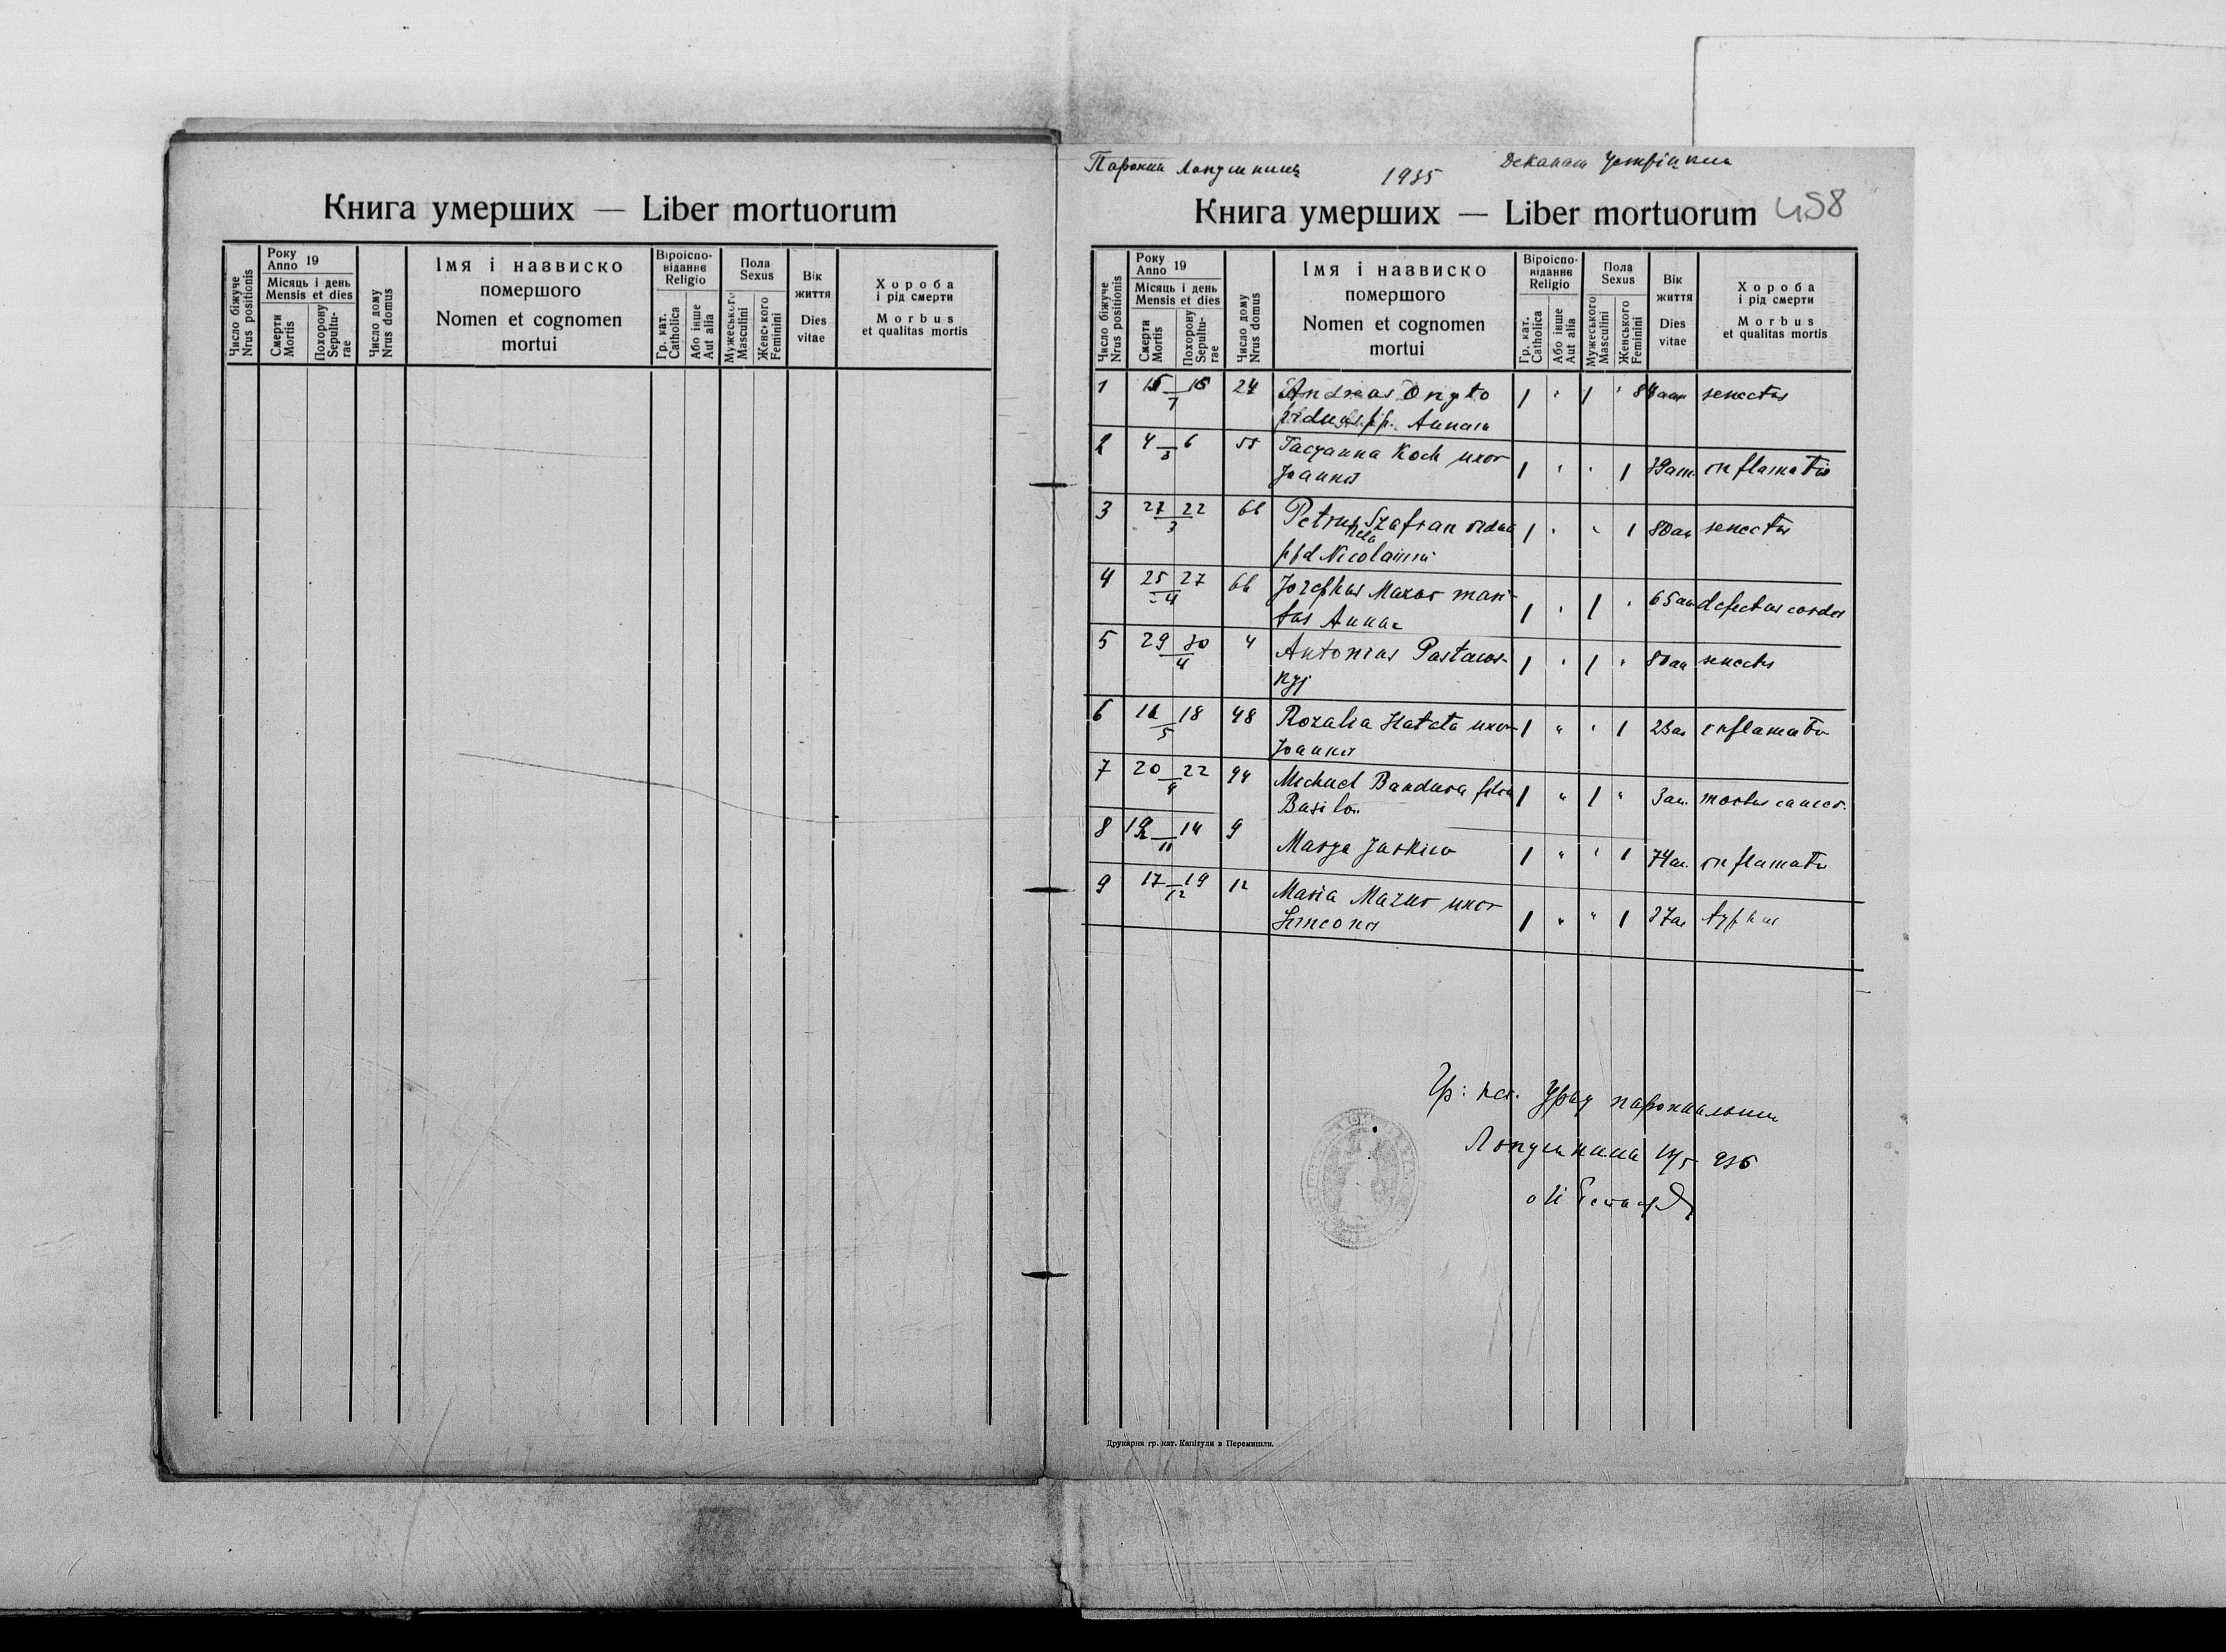 Книга умерших — Liber mortuorum
Число біжуче
Nrus positionis
Року
Anno 19
Місяць і день
Mensis et dies
Смерти
Mortis
Похорону
Sepultu-
rae
Число дому
Nrus domus
Імя і назвиско
помершого
Nomen et cognomen
mortui
Віроіспо-
віданнє
Religio
Гр. кат.
Catholica
Або інше
Aut alia
Пола
Sexus
Мужеського
Masculini
Женського
Feminini
Вік
життя
Dies
vitae
Хороба
і рід смерти
Morbus
et qualitas mortis
1935
Книга умерших — Liber mortuorum 458
Число біжуче
Nrus positionis
Року
Anno 19
Місяць і день
Mensis et dies
Смерти
Mortis
Похорону
Sepultu-
rae
Число дому
Nrus domus
Імя і назвиско
помершого
Nomen et cognomen
mortui
Віроіспо-
віданнє
Religio
Гр. кат.
Catholica
Або інше
Aut alia
Пола
Sexus
Мужеського
Masculini
Женського
Feminini
Вік
життя
Dies
vitae
Хороба
і рід смерти
Morbus
et qualitas mortis
1 24 Andreas 1 " 1 " senectus
Annam
2 4 6 3 55 Tacyanna Koch uxor 1 " " 1 39 an inflamatio
Joannis
3 27 22 3 66 Petrunela Szafran vidua 1 " " 1 80 an senectus
Nicolaum
4 25 27 4 66 Josephus Mazur mari- 1 " 1 " 65 an defectus cordis
tus Annae
5 29 30 4 4 Antonius 1 " 1 " 80 an senectus
6 18 5 48 Rozalia uxor 1 " " 1 23 an inflamatio
Joannis
7 20 22 94 Michael Bandura filius 1 " 1 " 3 an
Basilii
8 12 14 11 9 Marya Jaskiw 1 " " 1 74 an inflamatio
9 17 19 12 12 Maria Mazur uxor 1 " " 1 37 an typhus
Simeonis
Гр: кат. Уряд парохіальний
Друкарня гр. кат. Капітули в Перемишли.